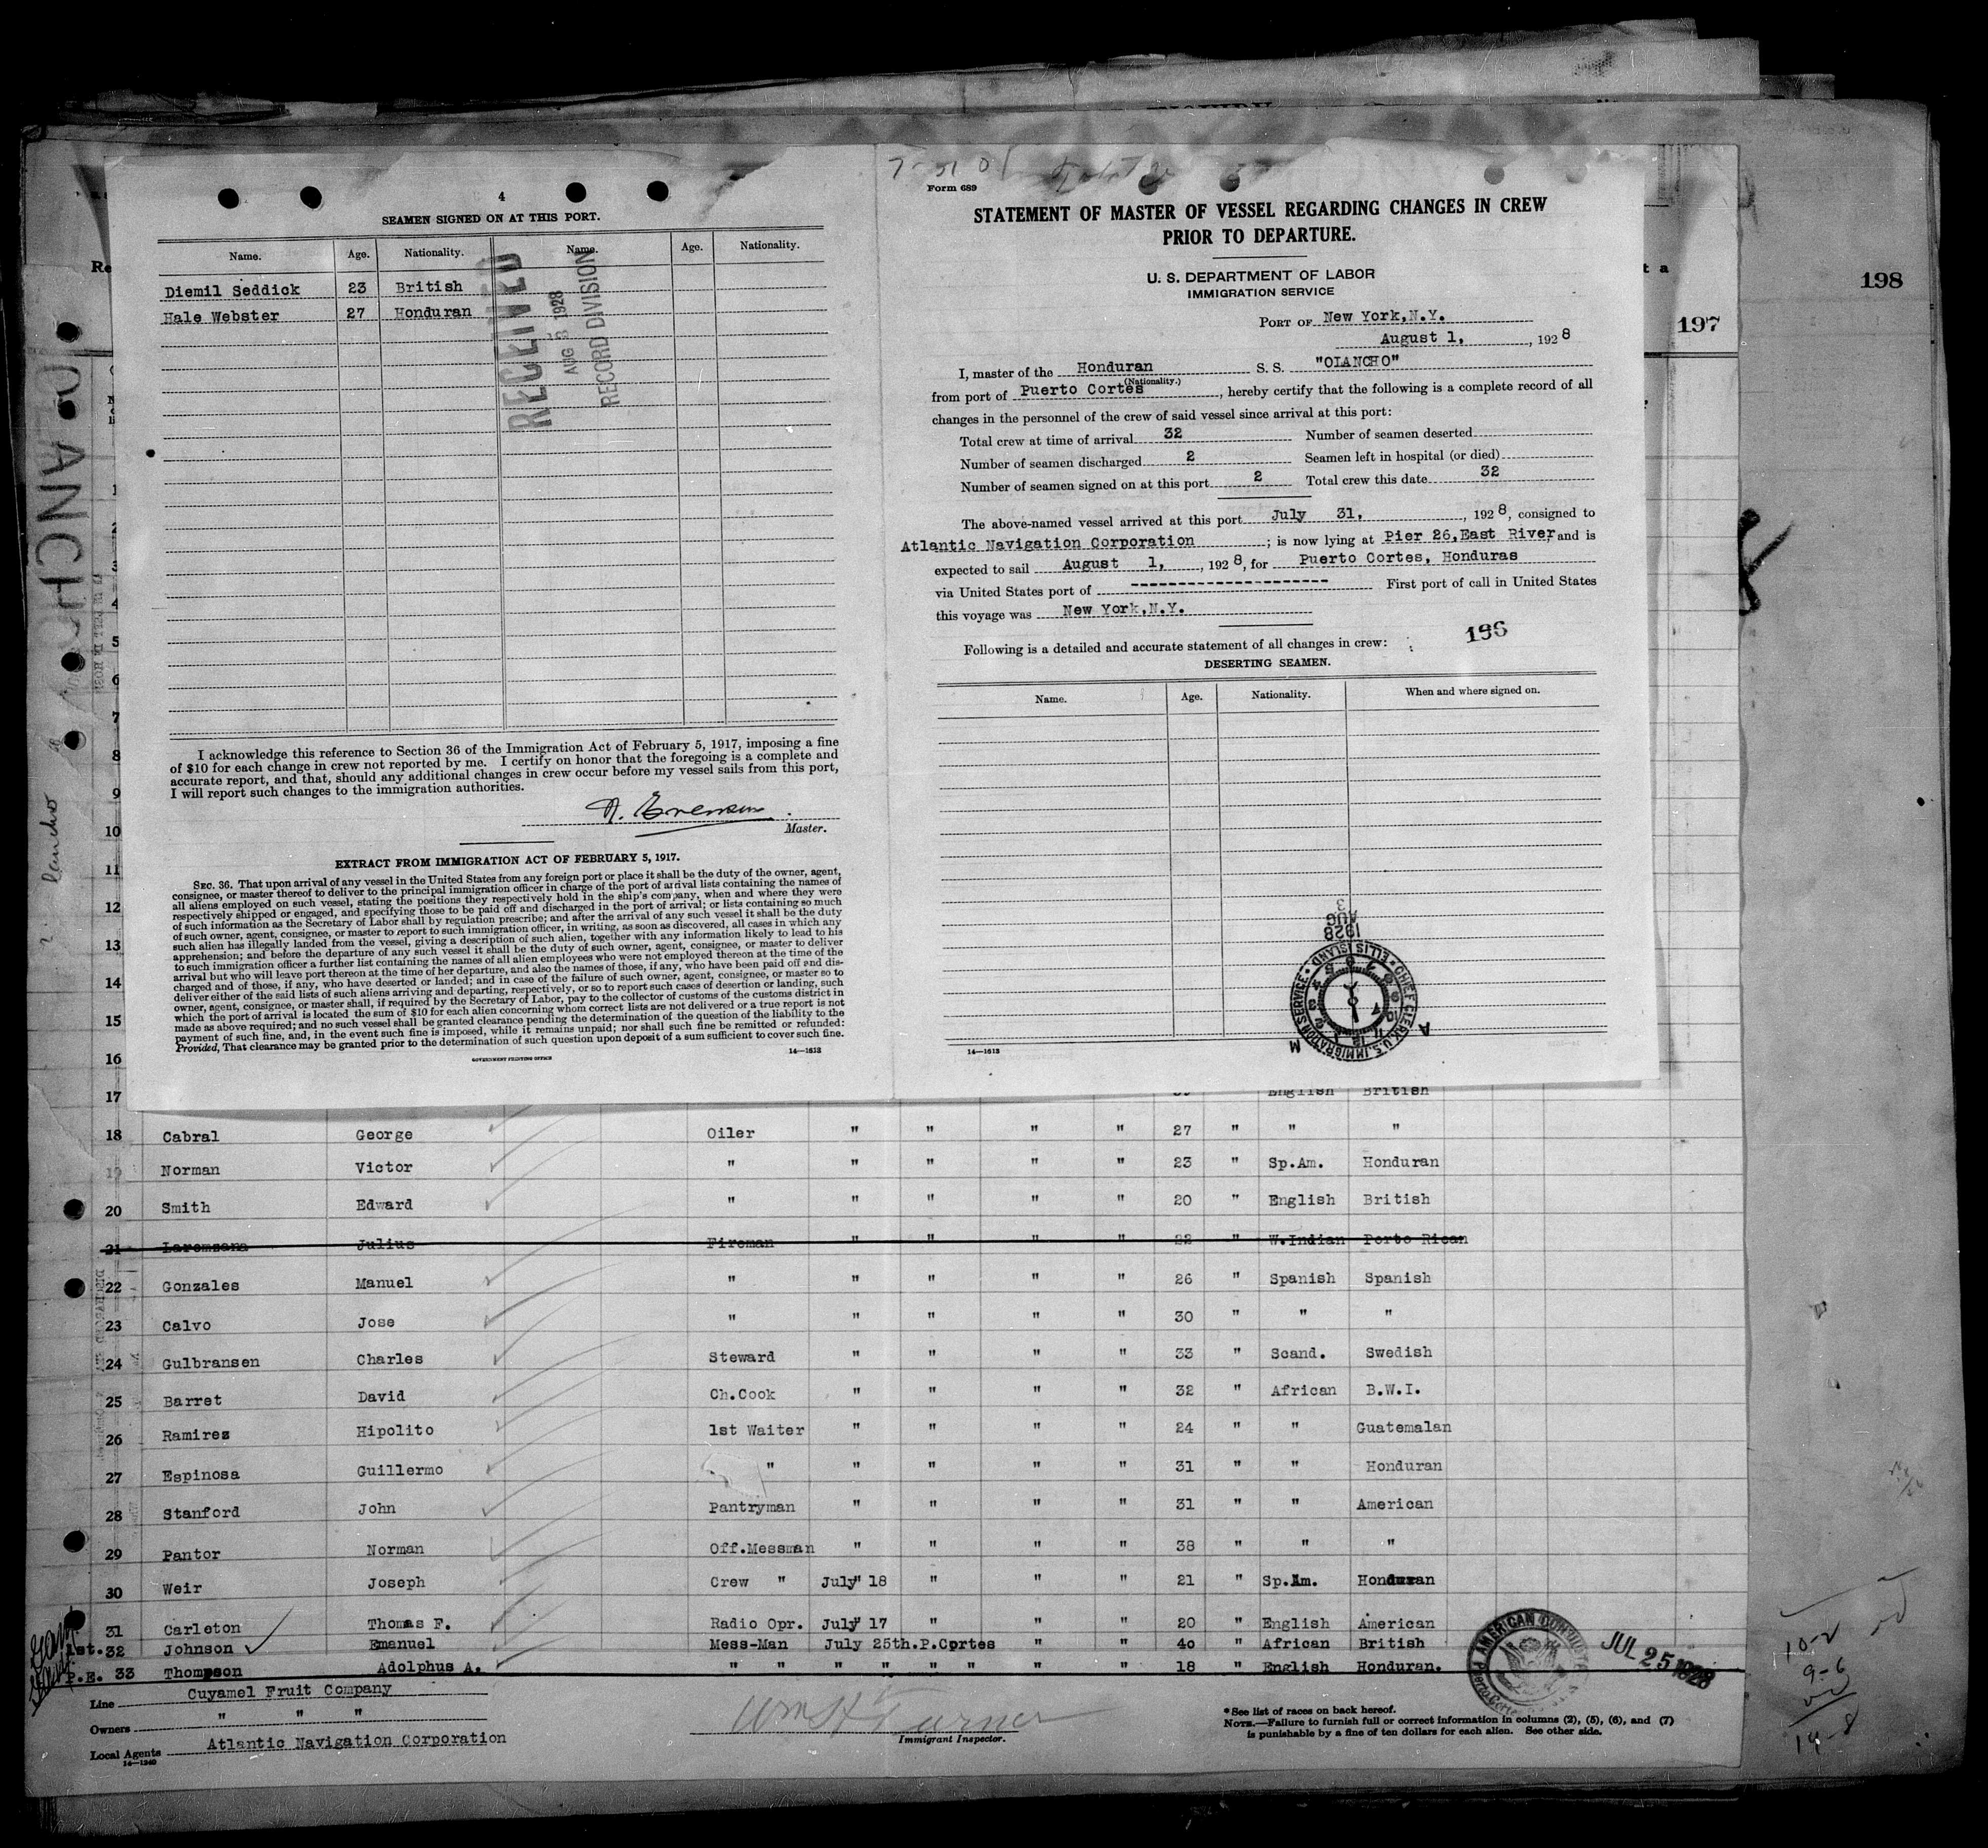 198
197
4
SEAMEN SIGNED ON AT THIS PORT.
Name. Age. Nationality. Name. Age. Nationality.
Diemil Seddick 23 British
Hale Webster 27 Honduran
RECEIVED
AUG 3 1928
RECORD DIVISION
I acknowledge this reference to Section 36 of the Immigration Act of February 5, 1917, imposing a fine
of $10 for each change in crew not reported by me. I certify on honor that the foregoing is a complete and
accurate report, and that, should any additional changes in crew occur before my vessel sails from this port,
I will report such changes to the immigration authorities.
Master.
EXTRACT FROM IMMIGRATION ACT OF FEBRUARY 5, 1917.
SEC. 36. That upon arrival of any vessel in the United States from any foreign port or place it shall be the duty of the owner, agent,
consignee, or master thereof to deliver to the principal immigration officer in charge of the port of arrival lists containing the names of
all aliens employed on such vessel, stating the positions they respectively hold in the ship's company, when and where they were
respectively shipped or engaged, and specifying those to be paid off and discharged in the port of arrival; or lists containing so much
of such information as the Secretary of Labor shall by regulation prescribe; and after the arrival of any such vessel it shall be the duty
of such owner, agent, consignee, or master to report to such immigration officer, in writing, as soon as discovered, all cases in which any
such alien has illegally landed from the vessel, giving a description of such alien, together with any information likely to lead to his
apprehension; and before the departure of any such vessel it shall be the duty of such owner, agent, consignee, or master to deliver
to such immigration officer a further list containing the names of all alien employees who were not employed thereon at the time of the
arrival but who will leave port thereon at the time of her departure, and also the names of those, if any, who have been paid off and dis-
charged and of those, if any, who have deserted or landed; and in case of the failure of such owner, agent, consignee, or master so to
deliver either of the said lists of such aliens arriving and departing, respectively, or so to report such cases of desertion or landing, such
owner, agent, consignee, or master shall, if required by the Secretary of Labor, pay to the collector of customs of the customs district in
which the port of arrival is located the sum of $10 for each alien concerning whom correct lists are not delivered or a true report is not
made as above required; and no such vessel shall be granted clearance pending the determination of the question of the liability to the
payment of such fine, and, in the event such fine is imposed, while it remains unpaid; nor shall such fine be remitted or refunded:
Provided, That clearance may be granted prior to the determination of such question upon deposit of a sum sufficient to cover such fine.
GOVERNMENT PRINTING OFFICE 14—1613
Form 689
STATEMENT OF MASTER OF VESSEL REGARDING CHANGES IN CREW
PRIOR TO DEPARTURE.
U. S. DEPARTMENT OF LABOR
IMMIGRATION SERVICE
PORT OF New York,N.Y.
August 1, , 1928
I, master of the Honduran S. S. "OLANCHO"
(Nationality.)
from port of Puerto Cortes , hereby certify that the following is a complete record of all
changes in the personnel of the crew of said vessel since arrival at this port:
Total crew at time of arrival 32 Number of seamen deserted
Number of seamen discharged 2 Seamen left in hospital (or died)
Number of seamen signed on at this port 2 Total crew this date 32
The above-named vessel arrived at this port July 31, , 1928, consigned to
Atlantic Navigation Corporation ; is now lying at Pier 26,East River and is
expected to sail August 1, , 1928, for Puerto Cortes, Honduras
via United States port of -------------------- First port of call in United States
this voyage was New York,N.Y.
196
Following is a detailed and accurate statement of all changes in crew:
DESERTING SEAMEN.
Name. Age. Nationality. When and where signed on.
1928
AUG
3
CHIEF CLERK, U.S. IMMIGRATION SERVICE • ELLIS ISLAND •
A M
14—1613
1
2
3
4
5
6
7
8
9
10
11
12
13
14
15
16
17 English British
18 Cabral George Oiler " " " " 27 " " "
19 Norman Victor " " " " " 23 " Sp.Am. Honduran
20 Smith Edward " " " " " 20 " English British
21 Laremzana Julius Fireman " " " " 22 " W.Indian Porto Rican
22 Gonzales Manuel " " " " " 26 " Spanish Spanish
23 Calvo Jose " " " " " 30 " " "
24 Gulbransen Charles Steward " " " " 33 " Scand. Swedish
25 Barret David Ch.Cook " " " " 32 " African B.W.I.
26 Ramirez Hipolito 1st Waiter " " " " 24 " " Guatemalan
27 Espinosa Guillermo " " " " " 31 " " Honduran
28 Stanford John Pantryman " " " " 31 " " American
29 Pantor Norman Off.Messman " " " " 38 " " "
30 Weir Joseph Crew " July 18 " " " 21 " Sp.Am. Honduran
31 Carleton Thomas F. Radio Opr. July 17 " " " 20 " English American
1st. 32 Johnson Emanuel Mess-Man July 25th.P.Cortes " " 40 " African British
P.E. 33 Thompson Adolphus A. " " " " " " " " 18 " English Honduran.
Line Cuyamel Fruit Company
Owners " " "
Local Agents Atlantic Navigation Corporation
14—1240
Wm H Turner
Immigrant Inspector.
* See list of races on back hereof.
NOTE.—Failure to furnish full or correct information in columns (2), (5), (6), and (7)
is punishable by a fine of ten dollars for each alien. See other side.
AMERICAN CONSULATE
JUL 25 1928
10-2
9-6
14-8